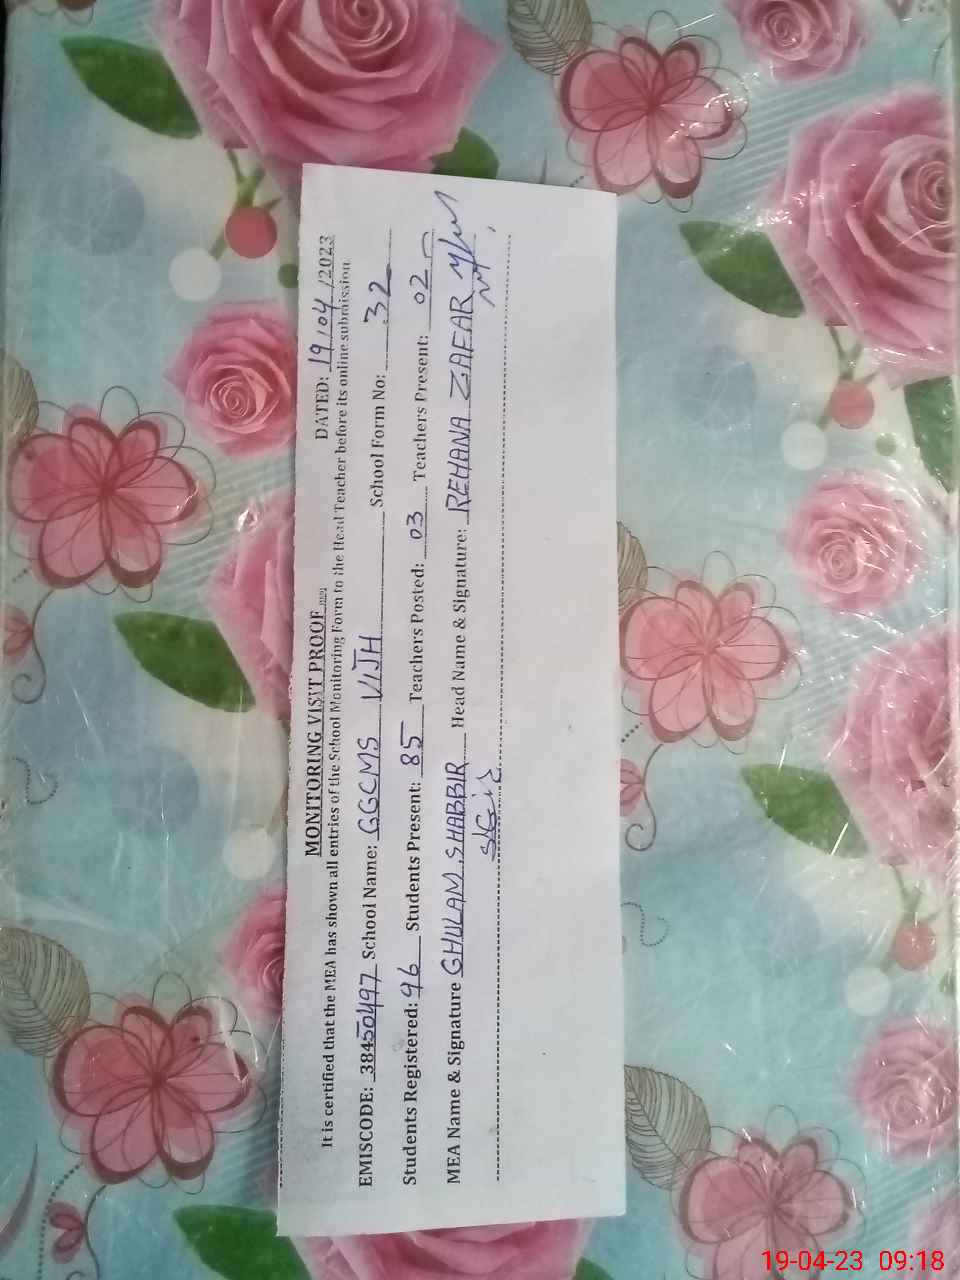 MONITORING VISIT PROOF
DATED: 19/04/2023
It is certified that the MEA has shown all entries of the School Monitoring Form to the Head Teacher before its online submission.
EMISCODE: 38450497 School Name: GGCMS VIJH School Form No: 32
Students Registered: 96 Students Present: 85 Teachers Posted: 03 Teachers Present: 02
MEA Name & Signature GHULAM SHABBIR Head Name & Signature: REHANA ZAFAR
19-04-23 09:18